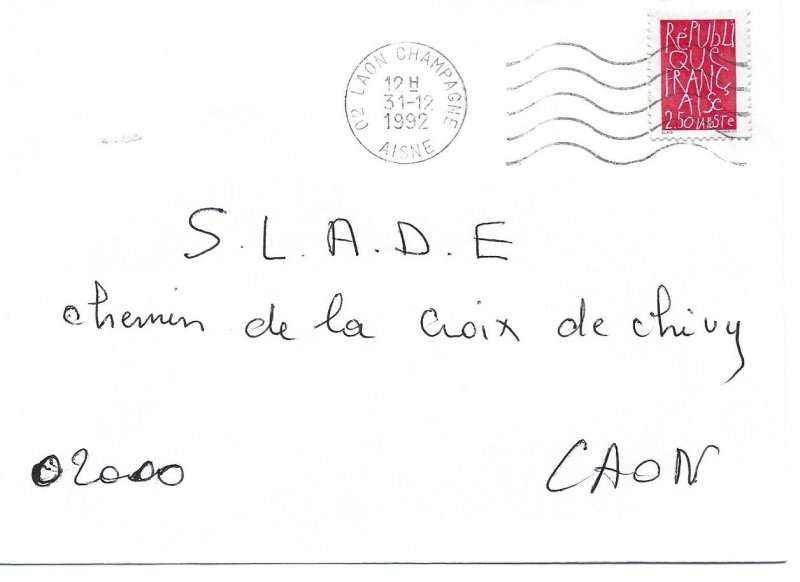 02 LAON CHAMPAGNE
12 H
31-12
1992
AISNE
RéPUbLI
QUe
FRANÇ
AISe
2.50 LA POSTe
S.L.A.D.E
chemin de la croix de chivy
02000 LAON